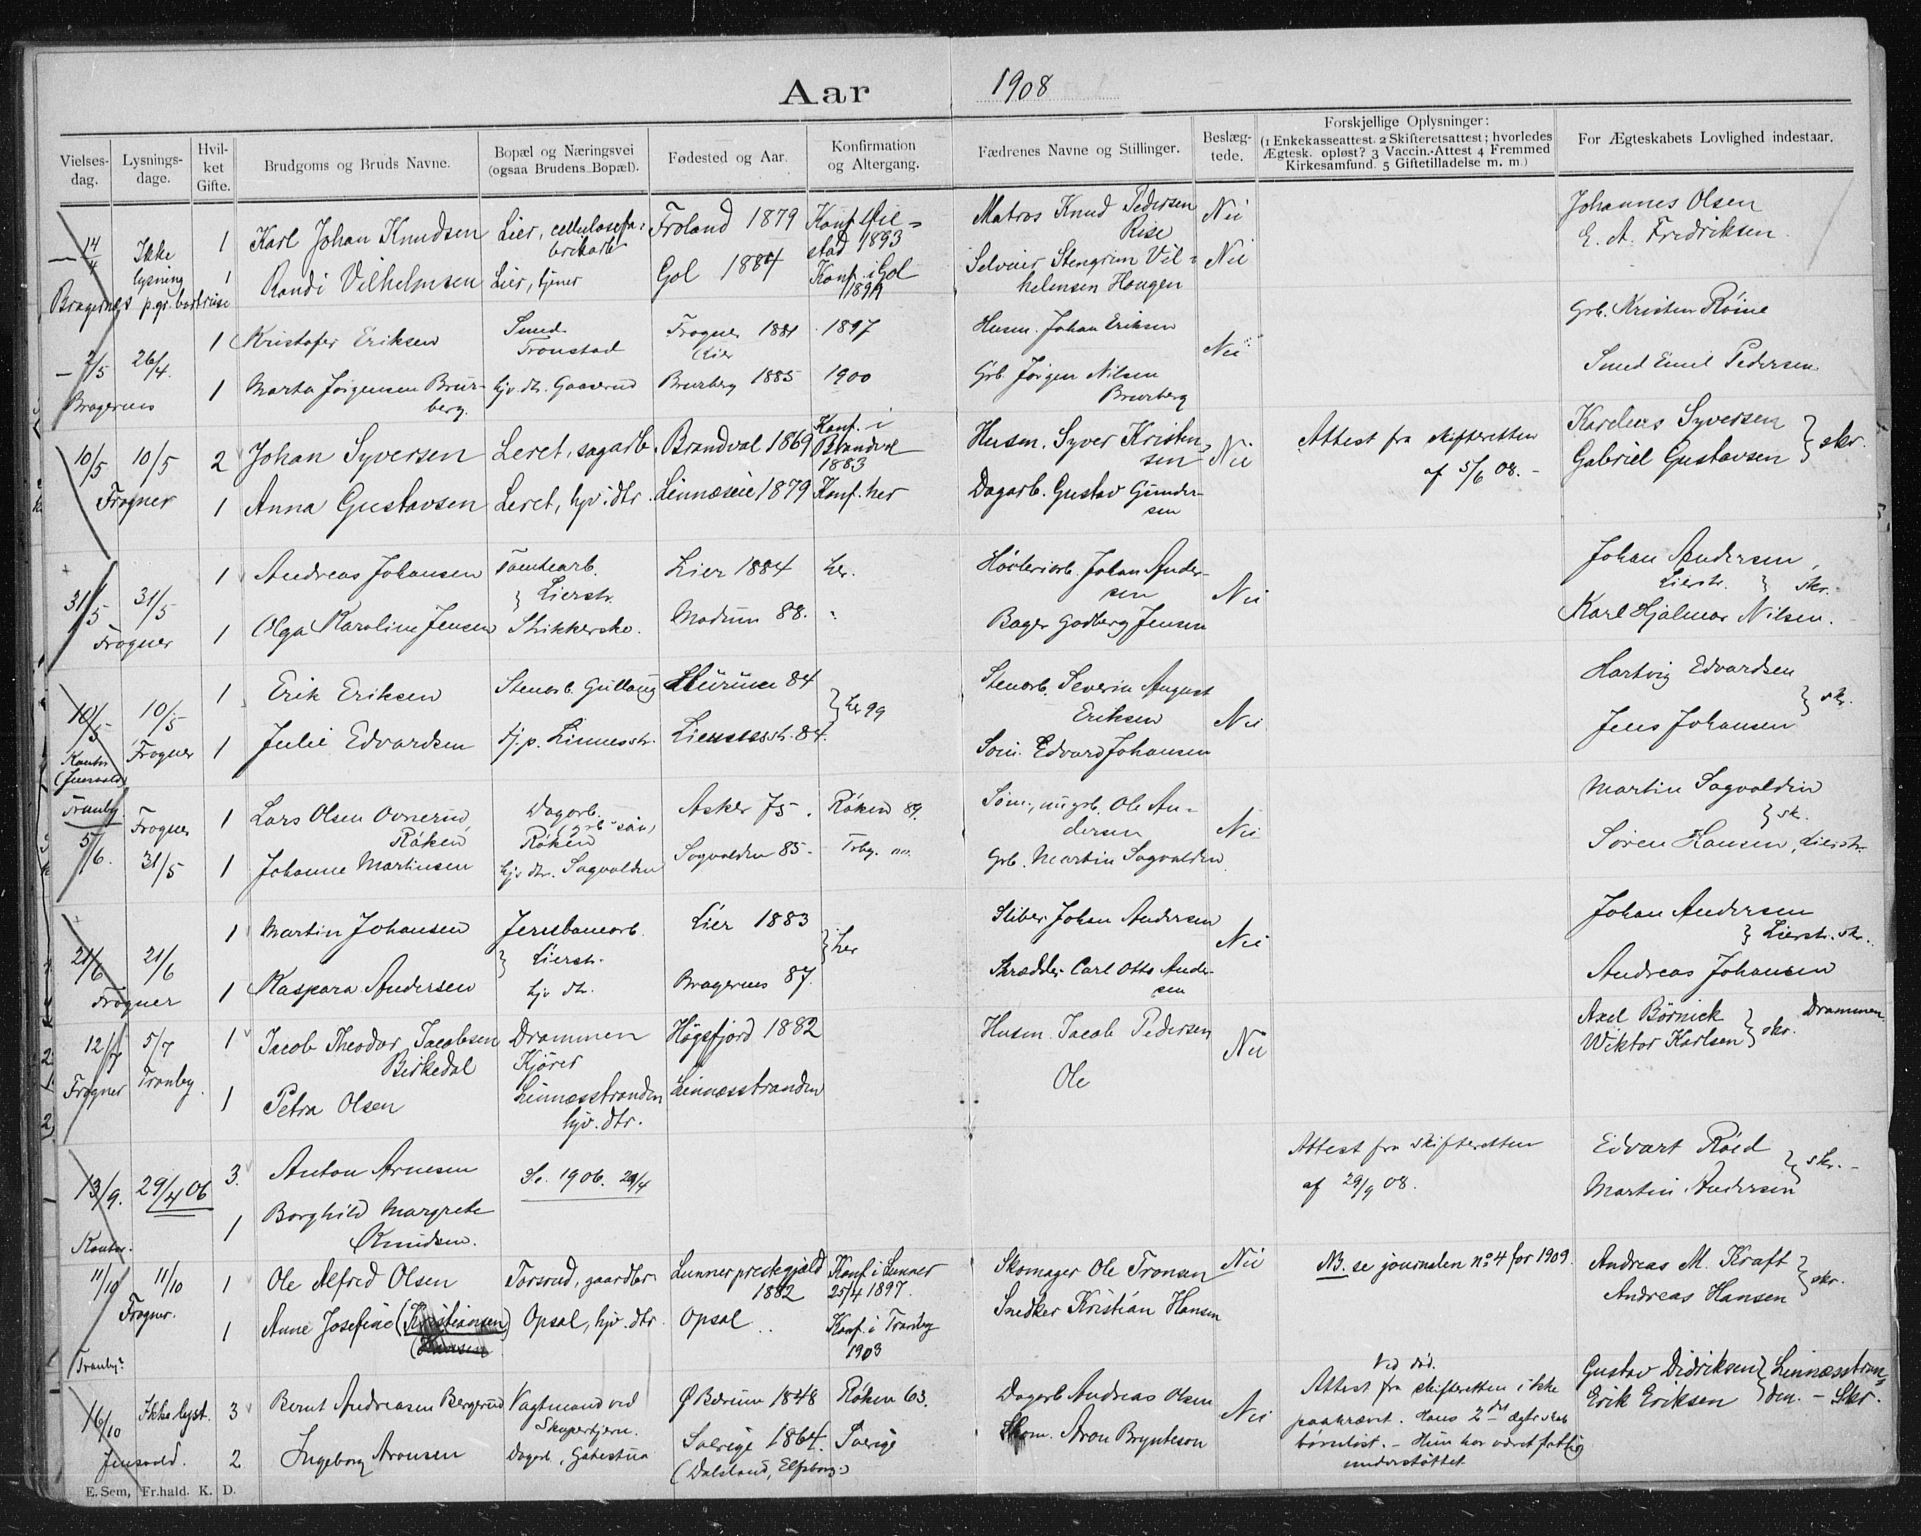 Aar 1908
Vielses-dag. Lysnings-dage. Hvil-ket Gifte. Brudgoms og Bruds Navne. Bopæl og Næringsvei (ogsaa Brudens Bopæl). Fødested og Aar. Konfirmation og Altergang. Fædrenes Navne og Stillinger. Beslæg-tede. Forskjellige Oplysninger: (1 Enkekasseattest. 2 Skifteretsattest; hvorledes Ægtesk. opløst? 3 Vaccin.-Attest 4 Fremmed Kirkesamfund. 5 Giftetilladelse m. m.) For Ægteskabets Lovlighed indestaar.
14/4 Ikke lysning 1 Karl Johan Knudsen Lier, cellulosefabrikarb Froland 1879 Konf. 1893 Matros Knud Pedersen Rise Nei Johannes Olsen
Bragernes p.gr. 1 Randi Vilhelmsen Lier, tjener Gol 1884 Konf. i Gol Selveier Stengrim Vilhelmsen Haugen Nei E. A. Fredriksen
7/5 26/4. 1 Kristofer Eriksen Smed Tronstad Frogner Lier 1881 1897 Husm. Johan Eriksen Nei Grb. Kristen Røine
Bragernes 1 Marta Jørgensen Brurberg. hjv. dtr. Gaaserud Brurberg 1885 1900 Grb. Jørgen Nilsen Brurberg Smed Emil Pedersen.
10/5 10/5 2 Johan Syversen Leret, sagarb. Brandval 1869 Konf. i Brandval 1883 Husm. Syver Kristensen Nei Attest fra skifteretten af 5/6 08. - Karelius Syversen
Frogner 1 Anna Gustavsen Leret, hjv. dtr. Linnæseie 1879 Konf. her Dagarb. Gustav Gundersen Gabriel Gustavsen } skr.
31/5 31/5 1 Andreas Johansen Tomtearb. Lierstr. Lier 1884 her. Høvleriarb. Johan Andersen Nei Johan Andersen, Lierstr. } skr.
Frogner 1 Olga Karoline Jensen Stikkerske. Modum 88. " Bager Godberg Jensen Karl Hjalmar Nilsen.
10/5 10/5 1 Erik Eriksen Stenarb. Gullaug Hurum 84 } her 99 Stenarb. Severin August Eriksen Nei Hartvig Edvardsen } sk.
Kontor (Juersvold) Frogner 1 Julie Edvardsen tj. p. Linnesstr. Liernesstr. 84. Søm. Edvard Johansen Jens Johansen
Tranby Frogner 1 Lars Olsen Ovnerud, Røken Dagarb. (grb. søn) Røken Asker 75. Røken 89. Søm., nu grb. Ole Andersen Nei Martin Sagvolden } sk.
5/6. 31/5 1 Johanne Martinsen hjv dtr. Sagvolden Sagvolden 85. Grb. Martin Sagvolden Søren Hansen, Lierstr.
21/6 21/6 1 Martin Johansen Jernbanearb. } Lierstr. Lier 1883 } her Sliber Johan Andersen Nei Johan Andersen } Lierstr. skr.
Frogner 1 Kaspara Andersen hjv dtr. Bragernes 87. Skrædder Carl Otto Andersen Andreas Johansen
12/7 5/7 1 Jacob Theodor Jacobsen Birkedal Drammen Kjører Høgsfjord 1882 Husm. Jacob Pedersen Nei Axel Børnick Wiktor Karlsen } skr. Drammen.
Frogner Tranby. 1 Petra Olsen Linnæsstranden hjv. dtr. Linnæsstranden Ole
13/9. 29/4 06 3. Anton Arnesen Se 1906. 29/4 Attest fra skifteretten af 29/9 08. Edvart Røed } skr.-
Kontor. 1 Borghild Margrete Knudsen. Martin Andersen
11/10 11/10 1 Ole Alfred Olsen Torsrud, gaardbr. Lunner prestegjæld 1882 Konf. i Lunner 25/4 1897. Skomager Ole Tronan Nei NB. se journalen no 4 for 1909. Andreas M. Kraft } skr.
Frogner. 1 Anne Josefine (Kristiansen) (Hansen Opsal, hjv. dtr. Opsal Konf. i Tranby 1903 Snedker Kristian Hansen Andreas Hansen
Tranby?
16/10 Ikke lyst. 3 Bernt Andreasen Bergerud Vagtmand ved Skuperbjern. Ø Bærum 1848 Røken 63. Dagarb Andreas Olsen Nei Ved død. Attest fra skifteretten ikke paakrævet. Hans 2det ægteskab barnløst. - Hun har været fattigunderstøttet Gustav Didriksen Erik Eriksen } Linnæsstranden. - Skr.
Juersvold. 2 Ingeborg Aronsen Dagarb., Gabestua Sverige 1864. (Dalsland, Elfsborg) Sverige Skom. Aron Brynteson
E. Sem, Fr.hald. K. D.